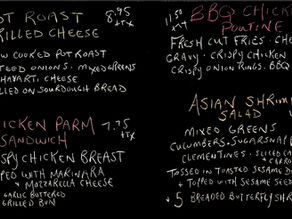 OT ROAST 8.95
RILLED CHEESE +TX
OW COOKED POT ROAST
TEED ONIONS. MIXED GREENS
HAVARTI, CHEESE
LLED ON SOURDOUGH BREAD
HICKEN PARM 7.75
SANDWICH +TX
SPY CHICKEN BREAST
PED WITH MARINARA
MOZZARELLA CHEESE
GARLIC BUTTERED
GRILLED BUN
11.50 BBQ CHICK
+TX POUTINE
FRESH CUT FRIES. CHE
GRAVY. CRISPY CHICKEN
CRISPY ONION RINGS. BBQ
ASIAN SHRIM
SALAD
MIXED GREENS
CUCUMBERS. SUGARSNAP
CLEMENTINES. SLICED
TOSSED IN TOASTED SESAME D
+ TOPPED WITH SESAME SEED
+ 5 BREADED BUTTERFLY SHR